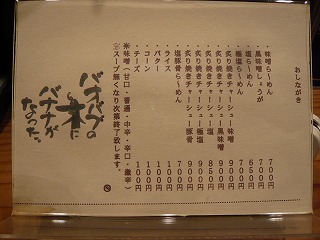 おしながき
・味噌らーめん 700円
・黒味噌しょうが 700円
・塩らーめん 650円
・極塩らーめん 700円
・炙り焼きチャーシュー味噌 900円
・炙り焼きチャーシュー黒味噌 900円
・炙り焼きチャーシュー塩 850円
・炙り焼きチャーシュー極塩 900円
・炙り焼きチャーシュー塩豚骨 900円
・塩豚骨らーめん 700円
・ライス 100円
・バター 100円
・コーン 100円
・チーズ 100円
※味噌(甘口・普通・中辛・辛口・激辛)
※スープ無くなり次第終了致します。
バオバブの
木に
バナナが
なのった。